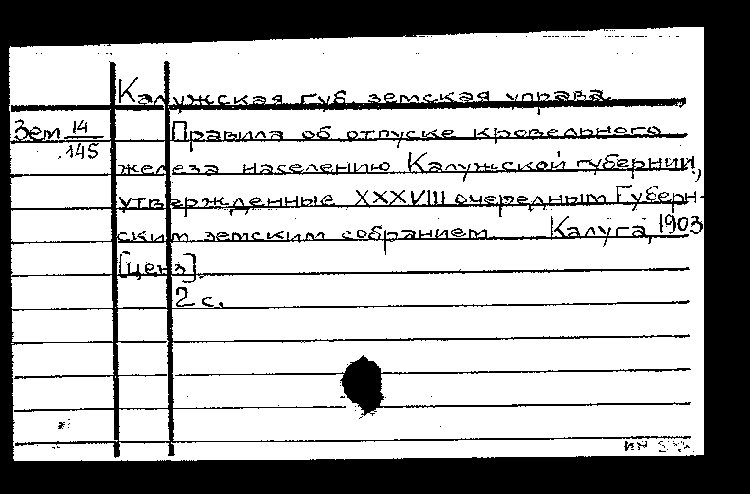 Калужская губ. земская управа.
Зем 14 Правила об отпуске кровельного
145
железа населению Калужской губернии,
утвержденные XXXVIII очередным Губерн-
ским земским собранием Калуга, 1903
[ценз].
2 с.